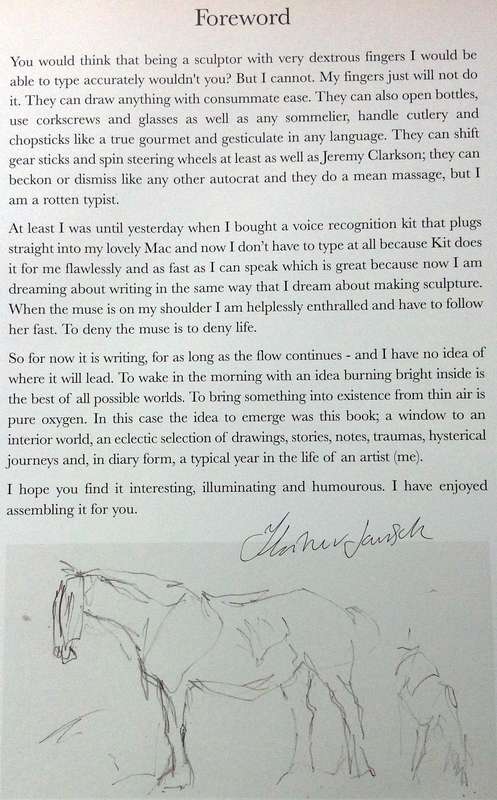 Foreword
You would think that being a sculptor with very dextrous fingers I would be
able to type accurately wouldn't you? But I cannot. My fingers just will not do
it. They can draw anything with consummate ease. They can also open bottles,
use corkscrews and glasses as well as any sommelier, handle cutlery and
chopsticks like a true gourmet and gesticulate in any language. They can shift
gear sticks and spin steering wheels at least as well as Jeremy Clarkson; they can
beckon or dismiss like any other autocrat and they do a mean massage, but I
am a rotten typist.
At least I was until yesterday when I bought a voice recognition kit that plugs
straight into my lovely Mac and now I don't have to type at all because Kit does
it for me flawlessly and as fast as I can speak which is great because now I am
dreaming about writing in the same way that I dream about making sculpture.
When the muse is on my shoulder I am helplessly enthralled and have to follow
her fast. To deny the muse is to deny life.
So for now it is writing, for as long as the flow continues - and I have no idea of
where it will lead. To wake in the morning with an idea burning bright inside is
the best of all possible worlds. To bring something into existence from thin air is
pure oxygen. In this case the idea to emerge was this book; a window to an
interior world, an eclectic selection of drawings, stories, notes, traumas, hysterical
journeys and, in diary form, a typical year in the life of an artist (me).
I hope you find it interesting, illuminating and humourous. I have enjoyed
assembling it for you.